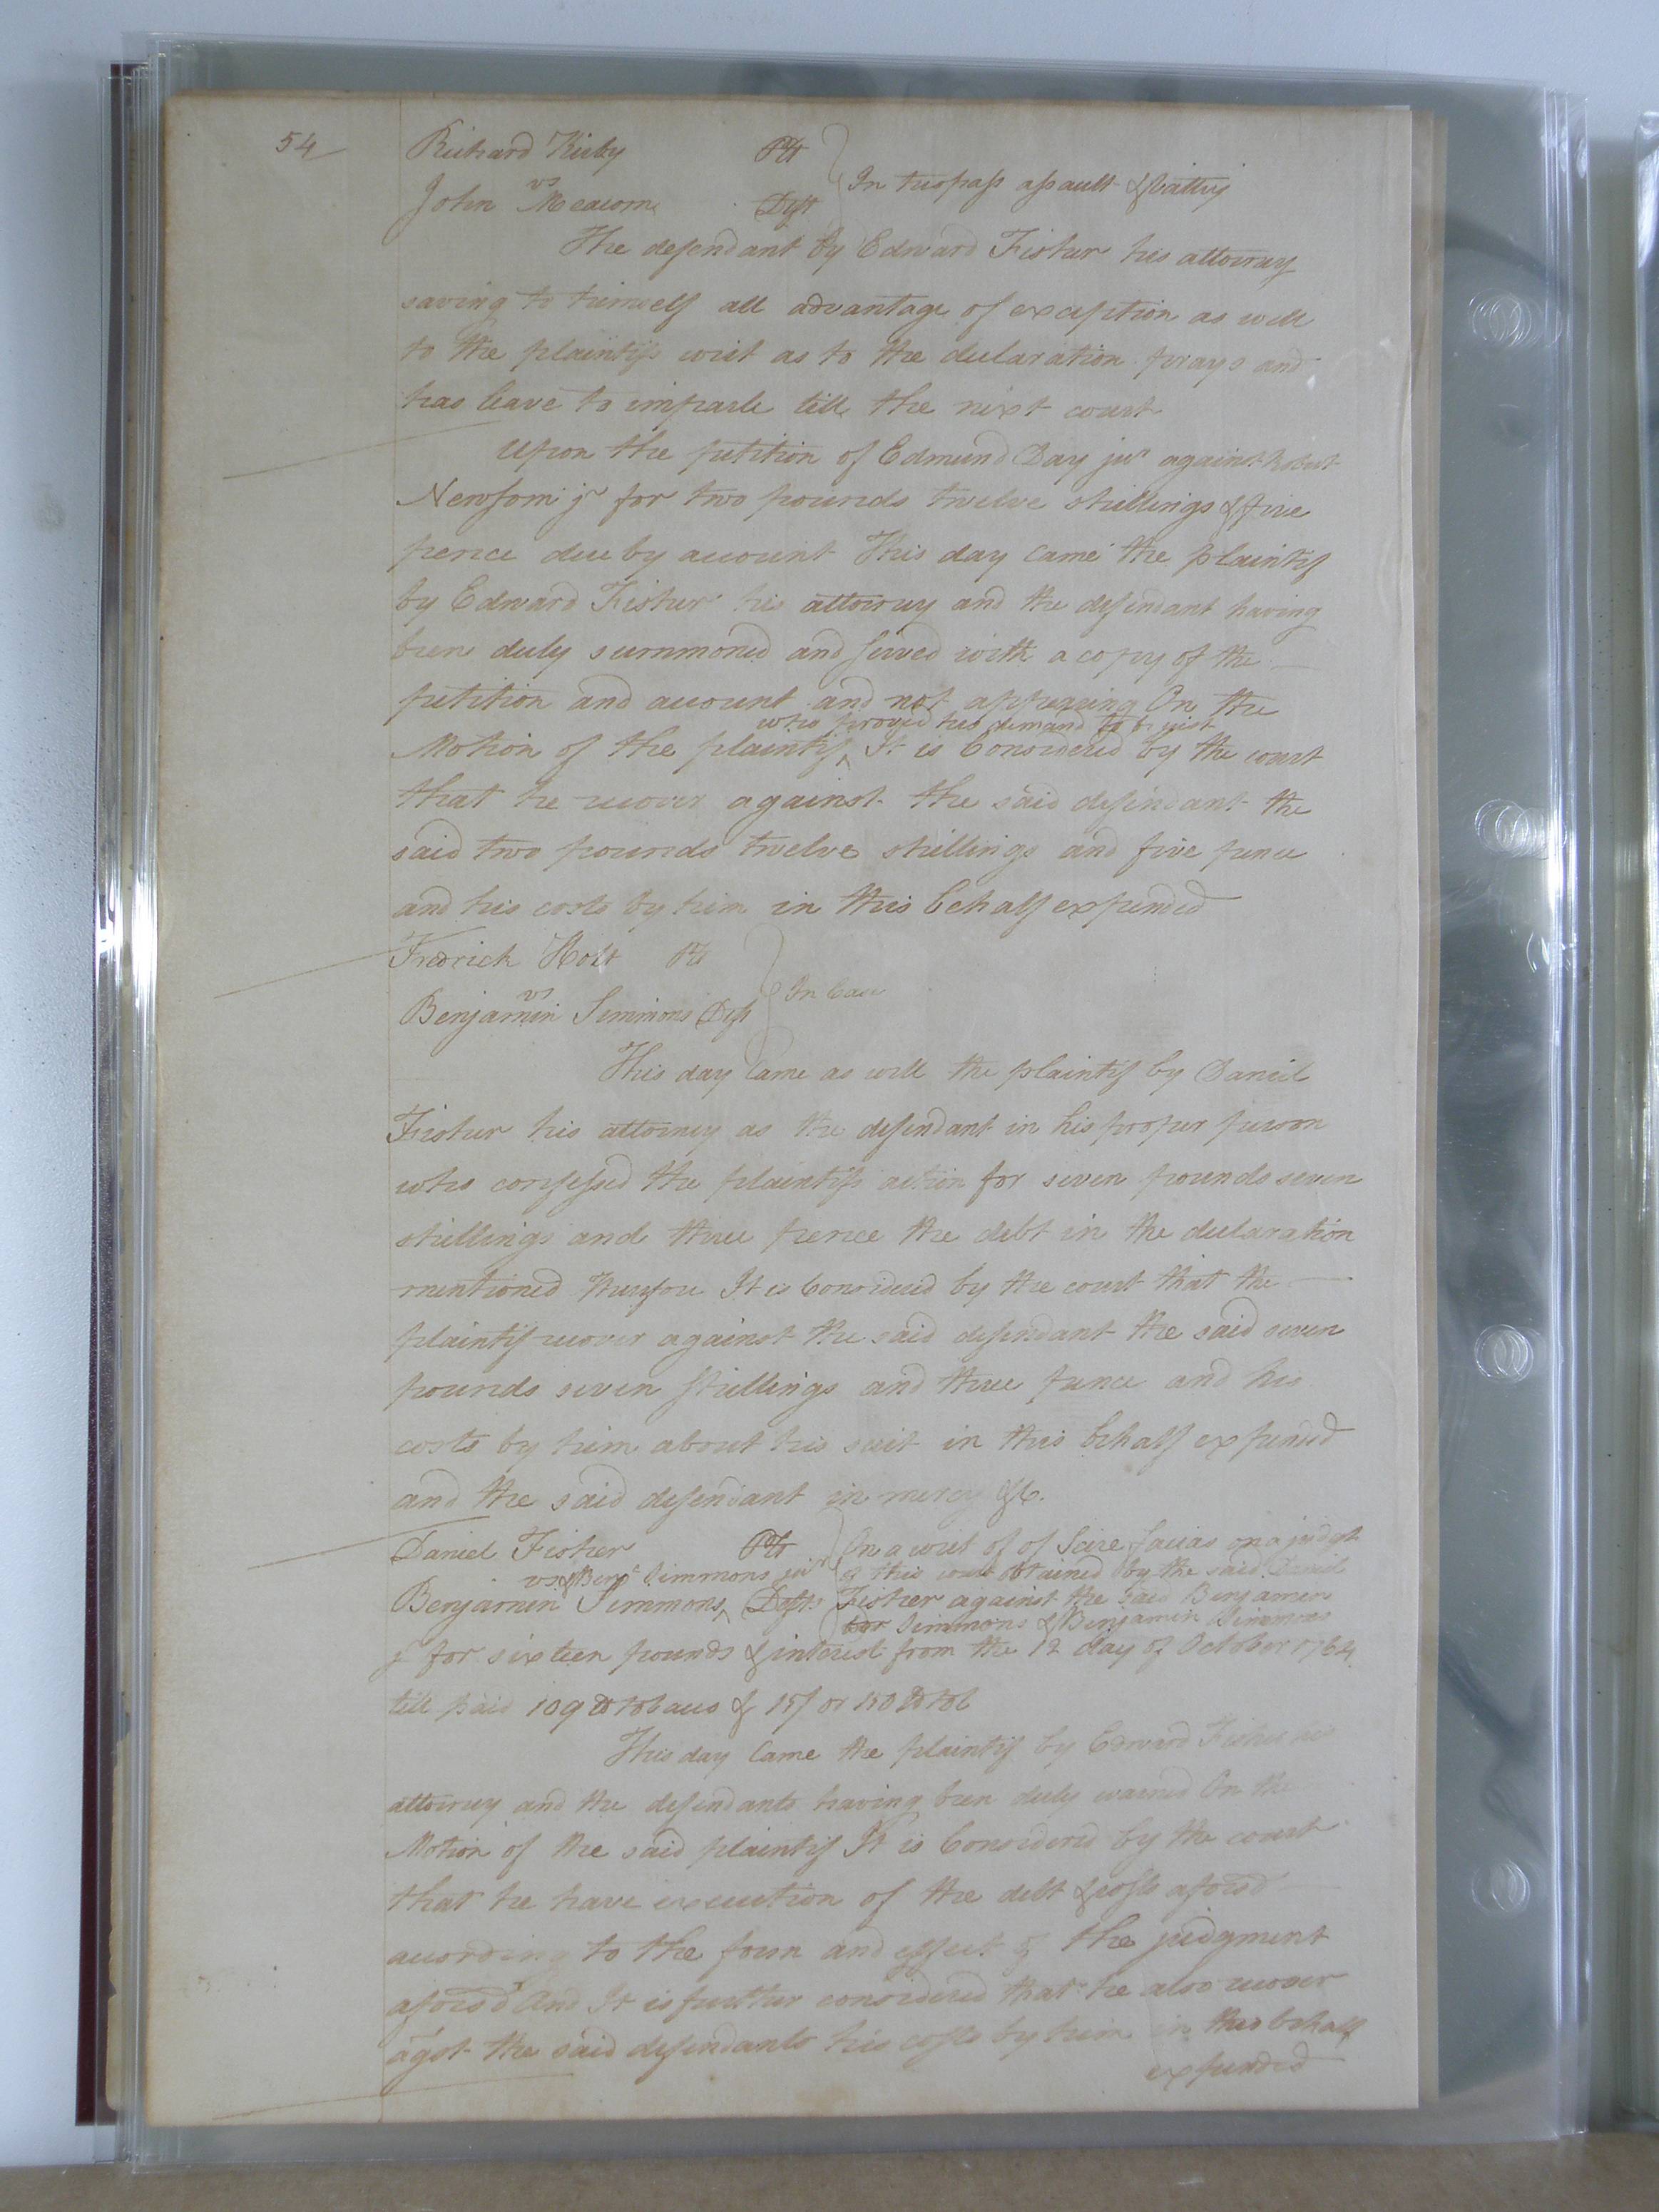 54
Richard Kirby Plt
vs In trespass assault & battery
John Meacom Deft
The defendant by Edward Fisher his attorney
saving to himself all advantage of exception as well
to the plaintifs writ as to the declaration prays and
has leave to imparle till the next court
Upon the petition of Edmund Day junr against Robert
Newsom jr for two pounds twelve shillings & five
pence due by account This day came the plaintif
by Edward Fisher his attorney and the defendant having
been duly summoned and served with a copy of the
petition and account and not appearing On the
who proved his demand to be just
Motion of the plaintif ^ It is Considered by the court
that he recover against the said defendant the
said two pounds twelve shillings and five pence
and his costs by him in this behalf expended
Fredrick Holt Plt
vs In Case
Benjamin Simmons Deft
This day Came as well the plaintif by Daniel
Fisher his attorney as the defendant in his proper person
who confessed the plaintifs action for seven pounds seven
shillings and three pence the debt in the declaration
mentioned Therefore It is Considered by the court that the
plaintif recover against the said defendant the said seven
pounds seven shillings and three pence and his
costs by him about his suit in this behalf expended
and the said defendant in mercy &c.
Daniel Fisher Plt On a writ of of Scire facias on a judgt
vs & Benja Simmons junr of this court obtained by the said Daniel
Benjamin Simmons ^ Defts Fisher against the said Benjamin
Simmons & Benjamin Simmons
jr for sixteen pounds & interest from the 12 day of October 1764
till paid 109 lb tobacco & 15/ or 150 lb tob
This day Came the plaintif by Edward Fisher his
attorney and the defendants having been duly warned On the
Motion of the said plaintif It is Considered by the court
that he have execution of the debt & costs aforesd
according to the form and effect of the judgment
aforesd And It is further considered that he also recover
agst the said defendants his costs by him in this behalf
expended